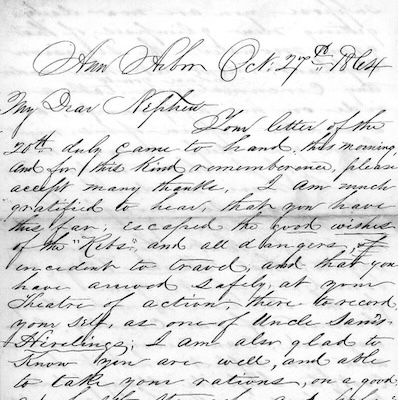 Ann Arbor Oct. 27th 1864
My Dear Nephew
Your letter of the
20th duly came to hand this morning
and for this kind rememberence, please
accept many thanks, I am much
gratified to hear, that you have
this far, escaped the good wishes
of the "Rebs", and all dangers,
encident to travel, and that you
have arrived safely, at your
Theatre of action, there to record
your self, as one of Uncle Sam's
Hirelings; I am also glad to
Know you are well, and able
to take your rations, on a good